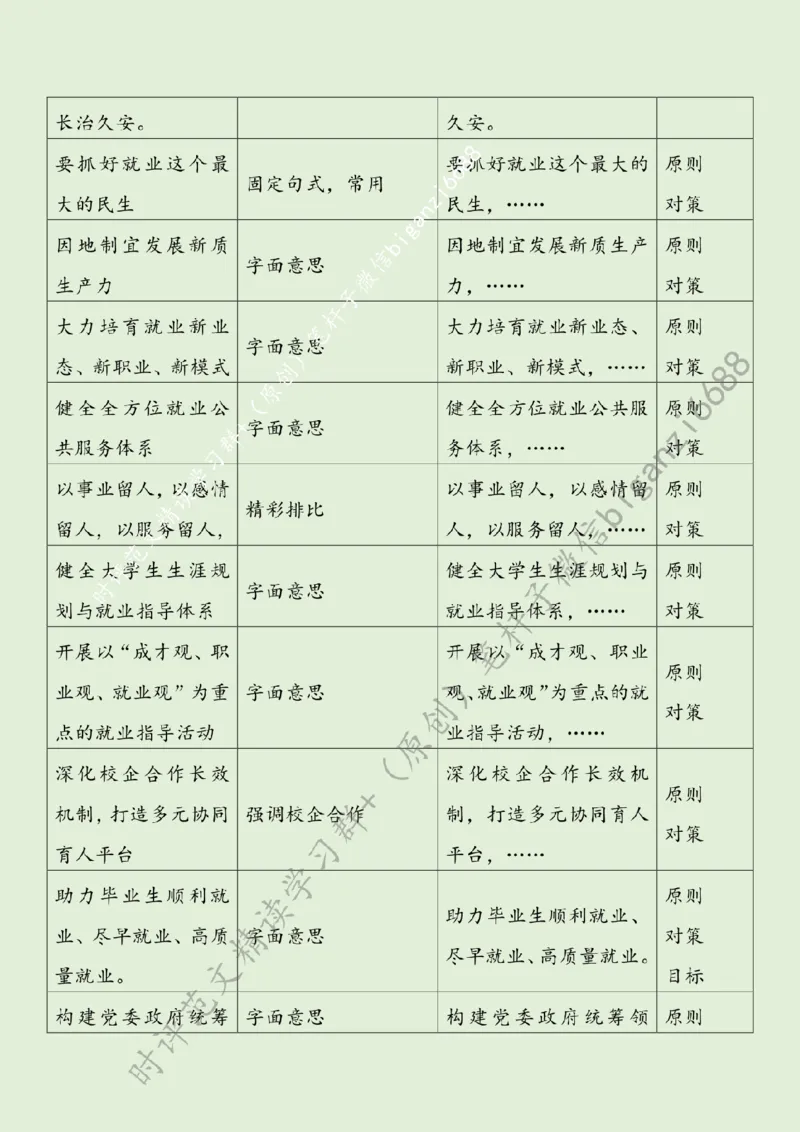 长治久安。
久安。
要抓好就业这个最
大的民生
固定句式，常用
要抓好就业这个最大的
民生，……
原则
对策
因地制宜发展新质
生产力
字面意思
因地制宜发展新质生产
力，……
原则
对策
大力培育就业新业
态、新职业、新模式
字面意思
大力培育就业新业态、
新职业、新模式，……
原则
对策
健全全方位就业公
共服务体系
字面意思
健全全方位就业公共服
务体系，……
原则
对策
以事业留人，以感情
留人，以服务留人，
精彩排比
以事业留人，以感情留
人，以服务留人，……
原则
对策
健全大学生生涯规
划与就业指导体系
字面意思
健全大学生生涯规划与
就业指导体系，……
原则
对策
开展以“成才观、职
业观、就业观”为重
点的就业指导活动
字面意思
开展以“成才观、职业
观、就业观”为重点的就
业指导活动，……
原则
对策
深化校企合作长效
机制，打造多元协同
育人平台
强调校企合作
深化校企合作长效机
制，打造多元协同育人
平台，……
原则
对策
助力毕业生顺利就
业、尽早就业、高质
量就业。
字面意思
助力毕业生顺利就业、
尽早就业、高质量就业。
原则
对策
目标
构建党委政府统筹
字面意思
构建党委政府统筹领
原则
时评范文精读学习群+（原创）笔杆子微信biganzi6688
时评范文精读学习群+（原创）笔杆子微信biganzi6688